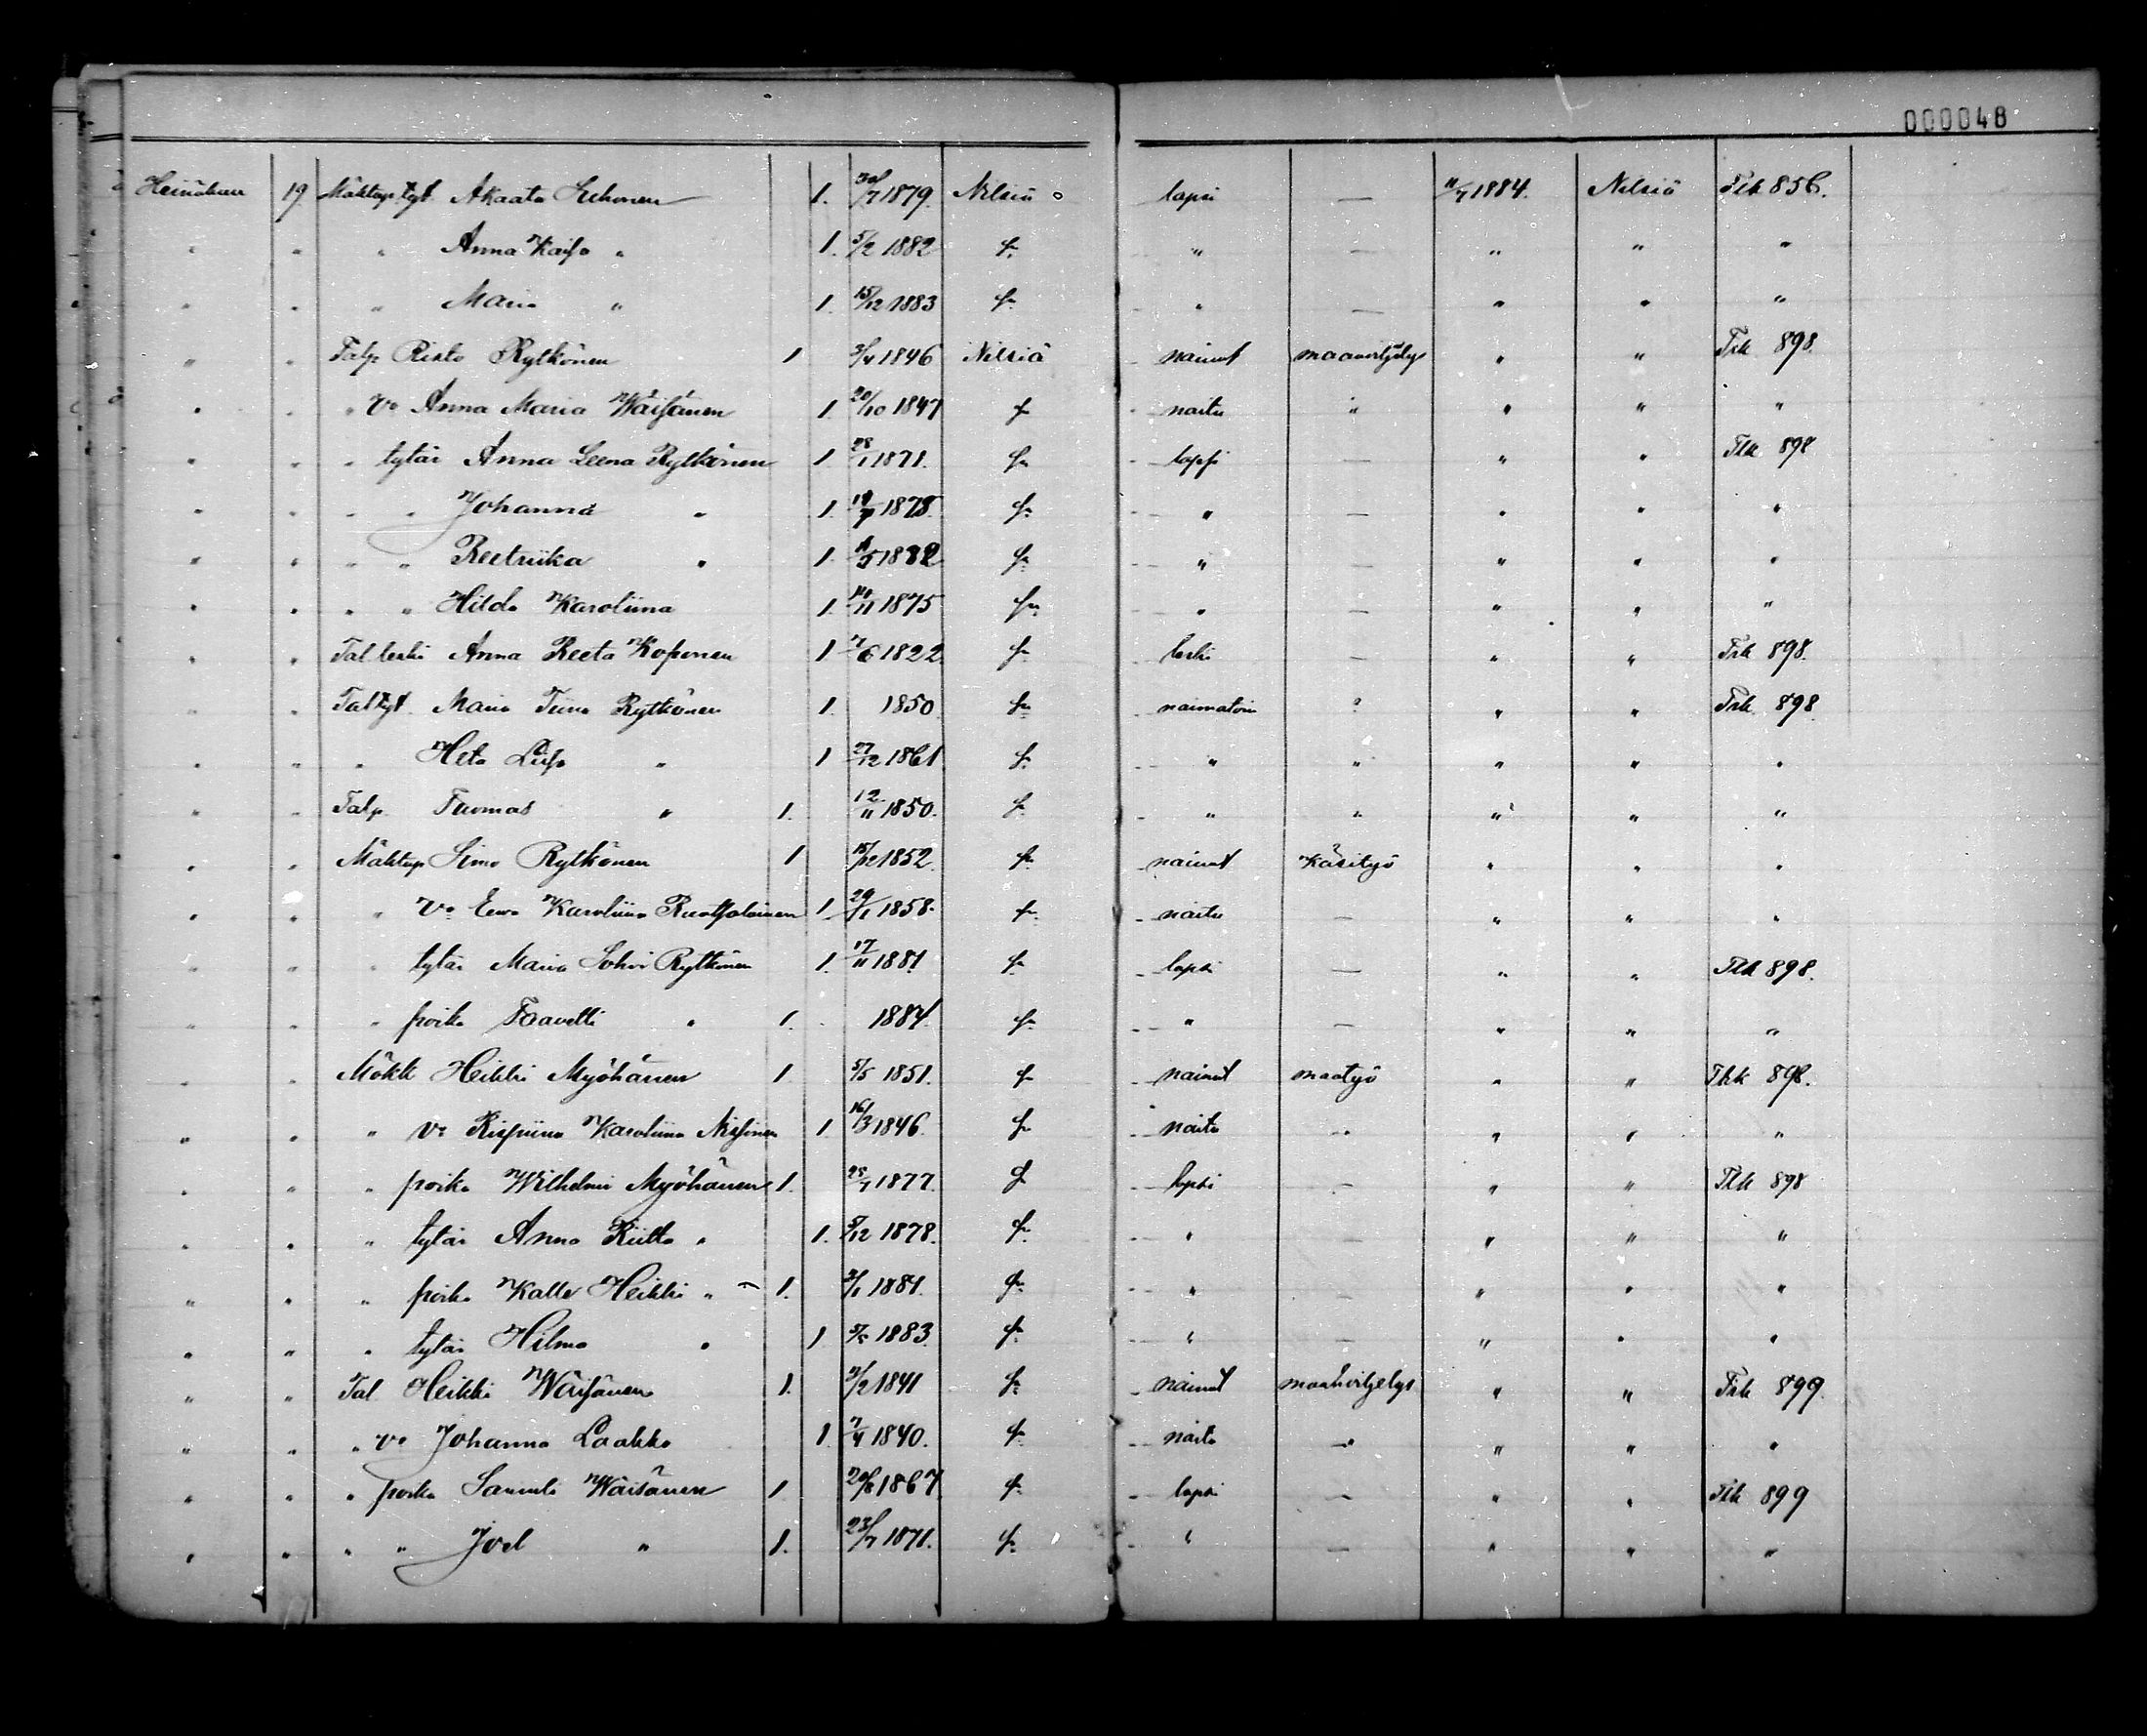 000048
19 Akaata 1. 30/7 1879. Nilsiä lapsi — 11/7 1884. Nilsiä Tlk 856.
" " " Anna Kaisa " 1. 5/2 1882 " — " " "
" " " Maria " 1 15/12 1883 " — " " "
" " Talp Risto Rytkönen 1 3/4 1846 Nilsiä nainut maanviljelys " " Trk 898.
" " " v. Anna Maria Wäisänen 1 20/10 1847 naitu " " " "
" " " tytär Anna Leena Rytkönen 1 28/1 1871. lapsi — " " Tlk 898
" " " " Johanna " 1. 1878. " — " " "
" " " " Reetriika " 1. 1882 " — " " "
" " " " Hilda Karoliina 1. 1875 " — " " "
" " Tal leski Anna Reeta Koponen 1 7/6 1822 leski — " " Trk 898.
" " Tal tyt. Maria Tiina Rytkönen 1. 1850 naimatoin " " " Trk 898
" " " Heta Liisa " 1 27/12 1861 " " " " "
" " Talp. Tuomas " 1. 12/11 1850. " " " " "
" " Simo Rytkönen 1 15/12 1852. nainut Käsityö " " "
" " " v. Eeva Karoliina 1 29/1 1858. naitu — " " "
" " " tytär Maria Sohvi Rytkönen 1. 17/11 1881 lapsi — " " Tlk 898.
" " " poika Taavetti " 1. 1884. " — " " "
" " Mökk Heikki Myöhänen 1 5/5 1851. nainut maatyö " " Trk 898.
" " " v. Karoliina 1 16/3 1846. naitu " " " "
" " " poika Wilhelmi Myöhänen 1. 25/7 1877. lapsi — " " Tlk 898
" " " tytär Anna Riitta " 1. 5/12 1878. " — " " "
" " " poika Kalle Heikki " 1. 1881. " — " " "
" " " tytär Hilma " 1 1883. " — " " "
" " Tal Heikki Wäisänen 1. 1841 nainut maanviljelys " " Trk 899.
" " " v. Johanna Laakko 1. 7/4 1840. naitu " " " "
" " " poika Samuli Wäisänen 1 1867 lapsi — " " Tlk 899
" " " " Joel " 1. 23/7 1871. " — " " "